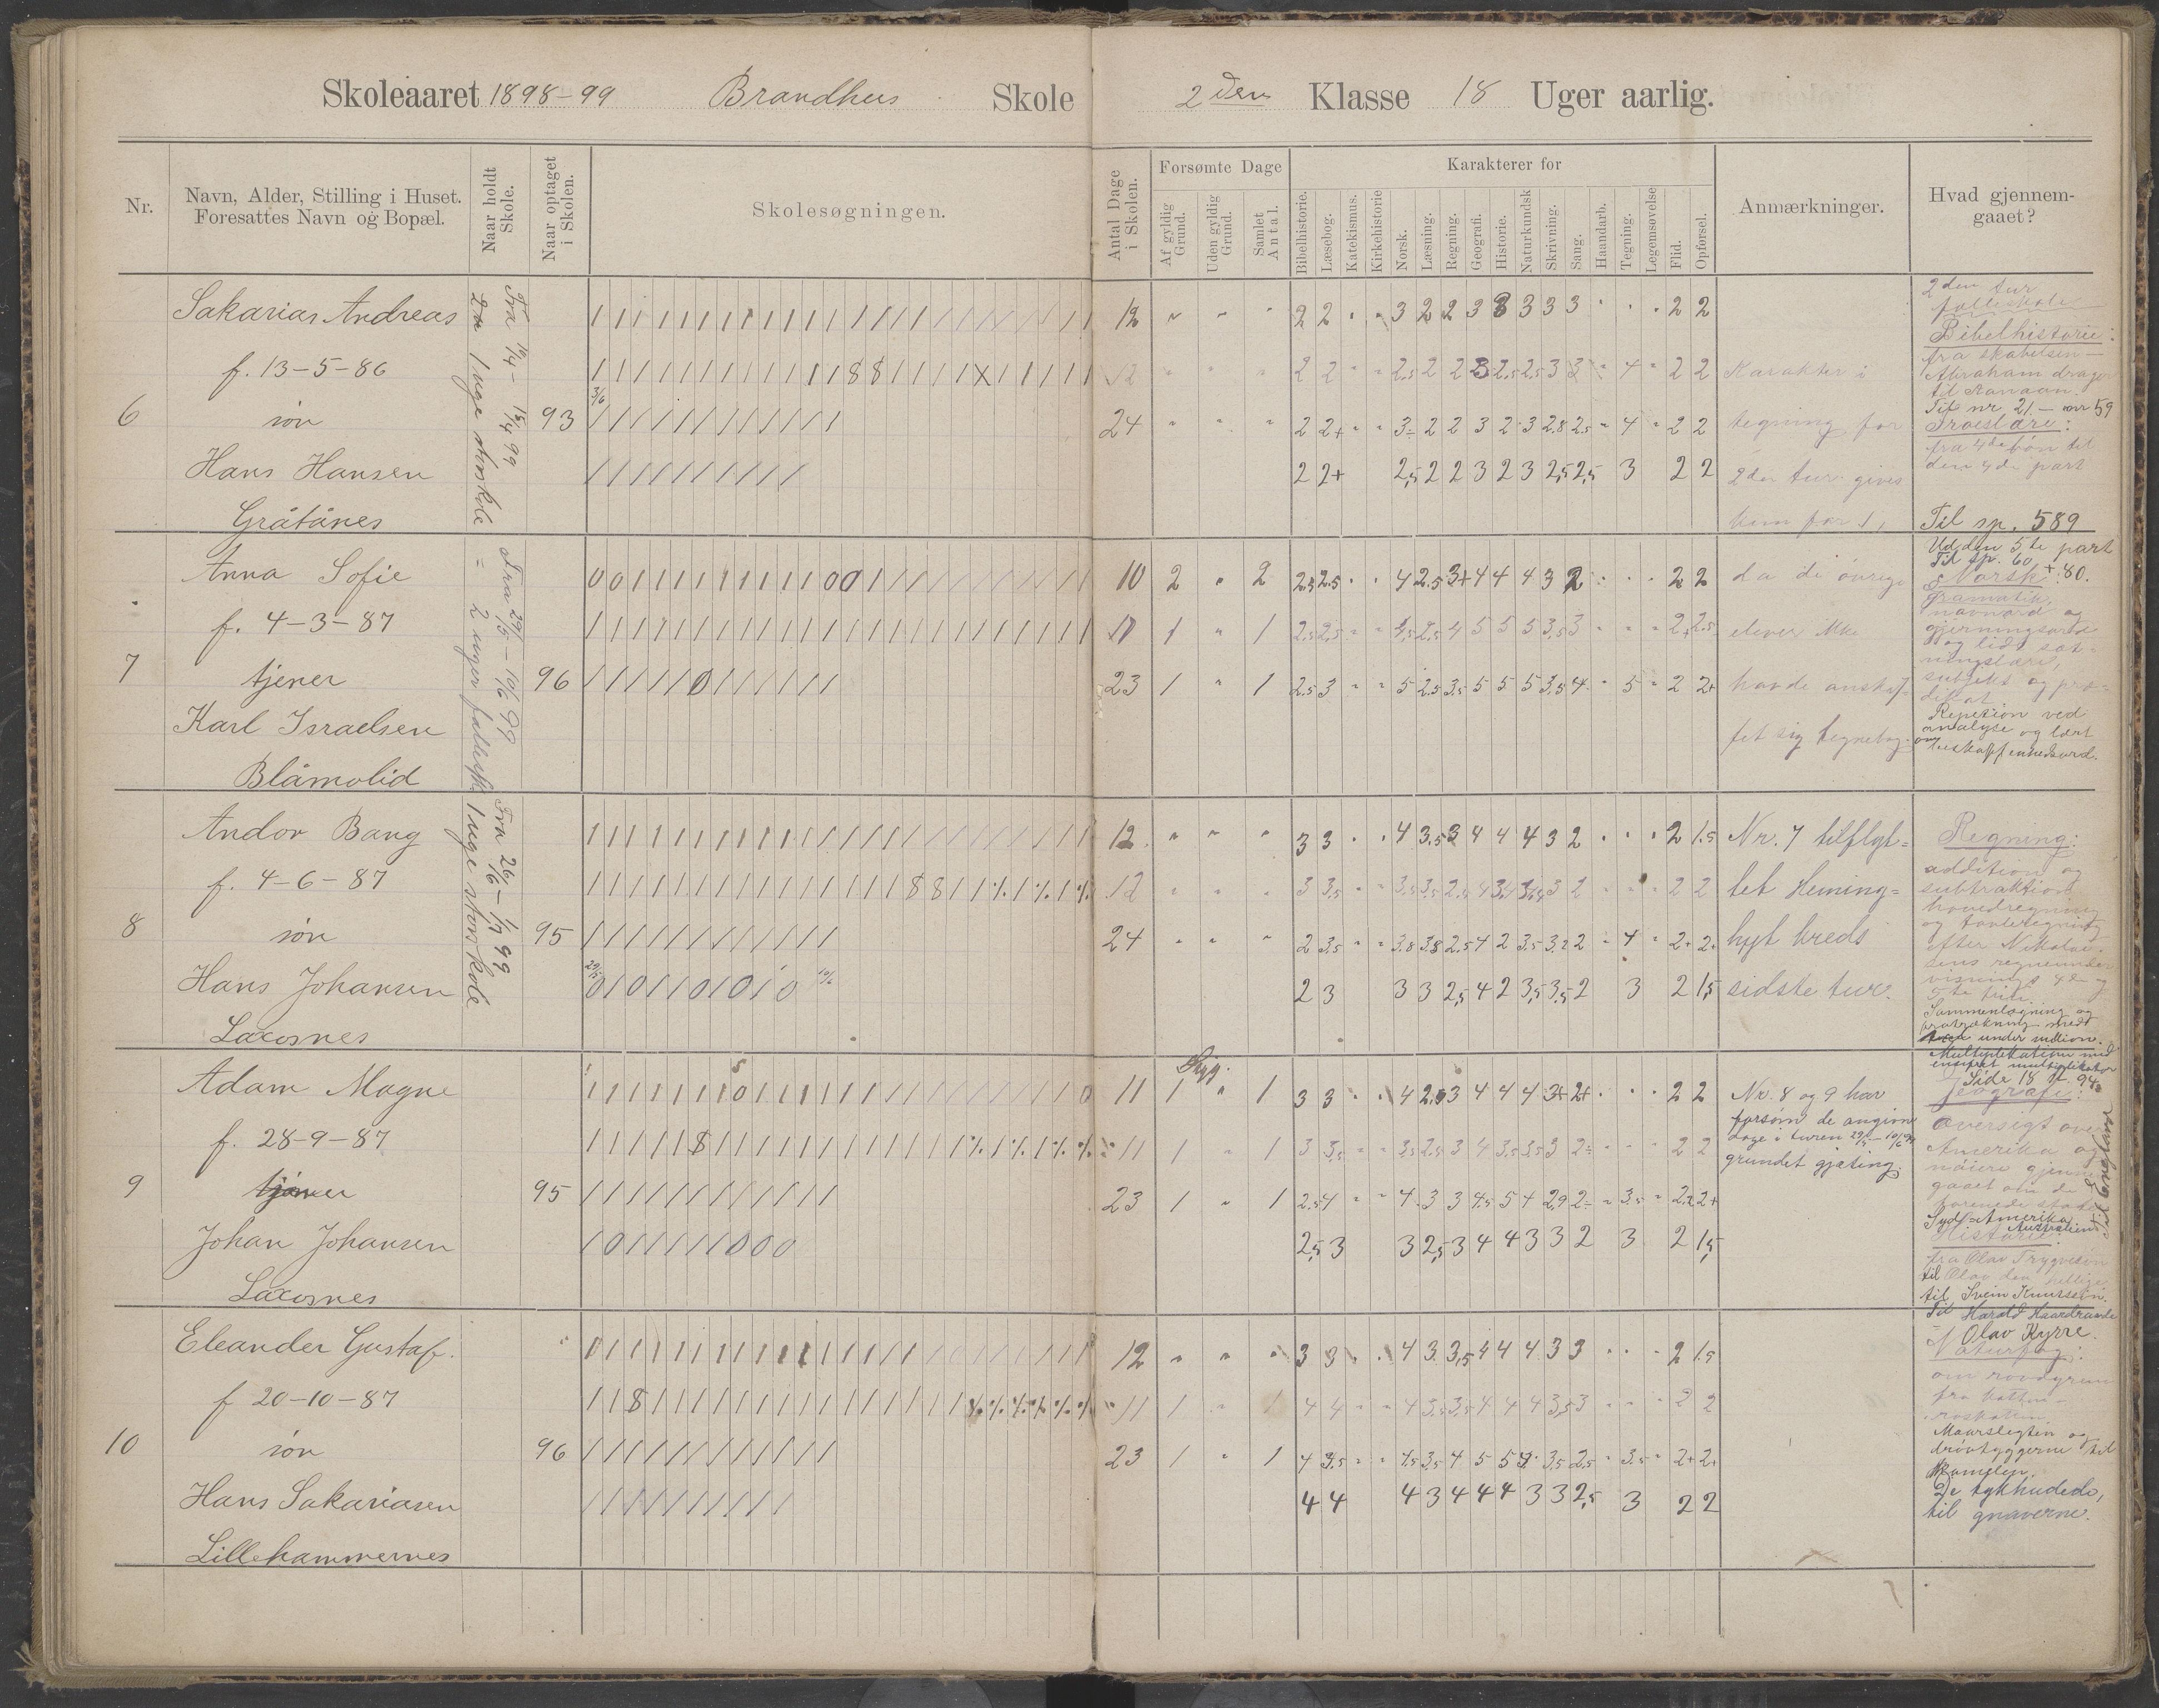 Skoleaaret 1898-99 Brandhus Skole
2den Klasse 18 Uger aarlig.
Nr.
Navn, Alder, Stilling i Huset.
Foresattes Navn og Bopæl.
Naar holdt
Skole.
Naar optaget
i Skolen.
Skolesøgningen.
Antal Dage
i Skolen.
Forsømte Dage
Af gyldig
Grund.
Uden gyldig
Grund.
Samlet
Antal.
Karakterer for
Bibelhistorie.
Læsebog.
Katekismus.
Kirkehistorie
Norsk.
Læsning.
Regning.
Geografi.
Historie.
Naturkundsk
Skrivning.
Sang.
Haandarb.
Tegning.
Legemsøvelse
Flid.
Opførsel.
Anmærkninger.
Hvad gjennem-
gaaet?
Sakarias Andreas
f. 13-5-86
6 søn 93
Hans Hansen
Gråtånes
12 " " " 2 2 3 2 2 3 3 3 3 3 2 2
12 2 2 2,5 2 2 3 2,5 2,5 3 3 4 2 2
24 2 2+ 3÷ 2 2 3 2 3 2,8 2,5 4 2 2
2 2+ 2,5 2 2 3 2 3 2,5 2,5 3 2 2
Karakter i
tegning for
2den tur gives
kun for 1,
da de øvrige
elever ikke
havde anskaf-
fet sig tegnebog.
Anna Sofie
f. 4-3-87
7 tjener 96
Karl Israelsen
Blåmolid
10 2 " 2 2,5 2,5 4 2,5 3+ 4 4 4 3 2 2 2
11 1 " 1 2,5 2,5 4,5 2,5 4 5 5 5 3,5 3 2+ 2,5
23 1 " 1 2,5 3 5 2,5 3,5 5 5 5 3,5 4 5 2 2+
Andor Bang
f. 4-6-87
8 søn 95
Hans Johansen
Laxosnes
12 " " " 3 3 4 3,5 3 4 4 4 3 2 2 1,5
12 3 3,5
24 2 3,5 3,8 3,8 2,5 4 2 3,5 3,2 2 4 2+ 2+
2 3 3 3 2,5 4 2 3,5 3,5 2 3 2 1,5
Nr. 7 tilflyt=
tet Heming=
hyt kreds
sidste tur.
Adam Magne
f. 28-9-87
9 tjener 95
Johan Johansen
Laxosnes
Syg.
11 1 " 1 3 3 4 2,5 3 4 4 4 3+ 2+ 2 2
11 1 " 1 3 3,5 3,5 2,5 3 4 3,5 3,5 3 2÷ 2 2
23 1 " 1 2,5 4 4 3 3 4,5 5 4 2,9 2÷ 3,5 2,2 2+
2,5 3 3 2,5 3 4 4 3 3 2 3 2 1,5
Nr. 8 og 9 har
forsømt de angivne
dage i turen 29/5-10/6 99
grundet gjæting.
Eleander Gustaf.
f 20-10-87
10 søn 96
Hans Sakariasen
Lillehammernes
12 " " " 3 3 4 3 3,5 4 4 4 3 3 2 1,5
11 1 " 1 4 4 4 3,5 3,5 4 4 4 3,5 3 2 2
23 1 " 1 4 3,5 4,5 3,5 4 5 5 4 3,5 2,5 3,5 2+ 2+
4 4 4 3 4 4 4 3 3 2,5 3 2 2
Fra 10/4 - 15/4 99
Fra 29/5 - 10/6 99
= 2 uger fællessk.
Fra 26/6 - 1/7 99
1 uge storskole
2den tur
fælleskole
Bibelhistorie:
fra skabelsen —
Abraham drager
til Kanaan.
Til nr. 21. — nr 59
Troeslære:
fra 4de bøn til
den 4de part
Til sp. 589
Ud den 5te part
Til sp. 60 + 80.
Norsk
gramatik,
navnord og
gjerningsord
og lidt sæt=
ningslære,
subjekt og præ=
dikat
Repetion ved
analyse og lært
om beskaffenhedsord.
Regning:
addition og
subtraktion
hovedregning
og tavleregning
efter Nikolai=
sens regneunder
visnings 4de og
5te trin.
Sammenlægning og
fratrækning med
under million.
Multiplikation med
ensifret multiplikator
Side 18 st. 94
Jeografi:
Oversigt over
Amerika og
nøiere gjennem
gaaet om de
forenede stater
Syd-Amerika
Australien
til England
Historie:
fra Olav Trygvesøn
til Olav den hellige
til Svein Knutssøn.
Til Harald Haardraade
Olav Kyrre.
Naturfag:
om rovdyrene
fra katten —
røskatten.
Maarslegten og
drøvtyggerne til
Kamelen.
De tykhudede,
til gnaverne.